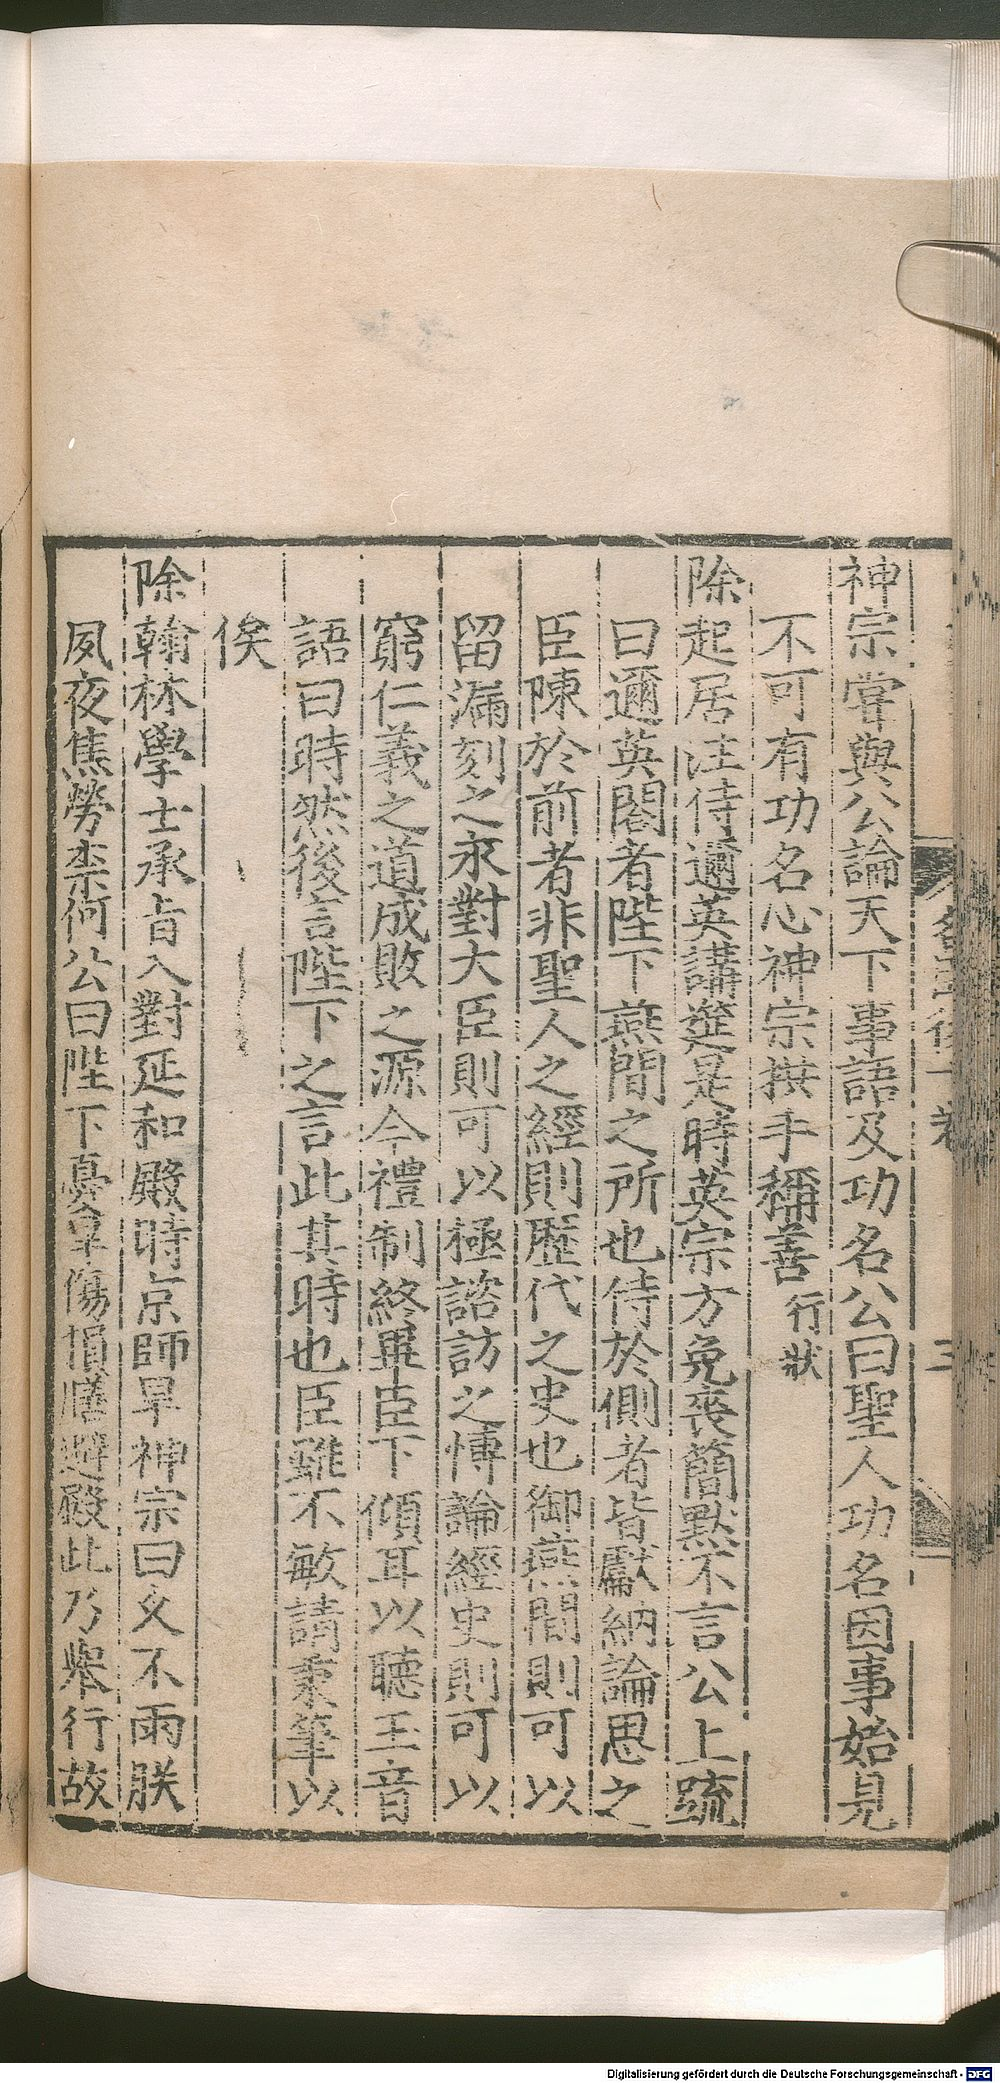 神宗嘗與公論天下事語及功名公曰聖人功名因事始見
不可有功名心神宗拱手稱善行狀
除起居注侍邇英講筵是時英宗方免喪簡默不言公上疏
曰邇英閣者陛下燕閒之所也侍於側者皆獻納論思之
臣陳於前者非聖人之經則歷代之史也御燕閒則可以
留漏刻之永對大臣則可以極諮訪之博論經史則可以
窮仁義之道成敗之源今禮制終畢臣下傾耳以聽玉音
語曰時然後言陛下之言此其時也臣雖不敏請秉筆以
俟
除翰林學士承旨入對延和殿時京師旱神宗曰久不雨朕
夙夜焦勞柰何公曰陛下憂旱傷損膳避殿此乃舉行故
Digitalisierung gefördert durch die Deutsche Forschungsgemeinschaft - DFG